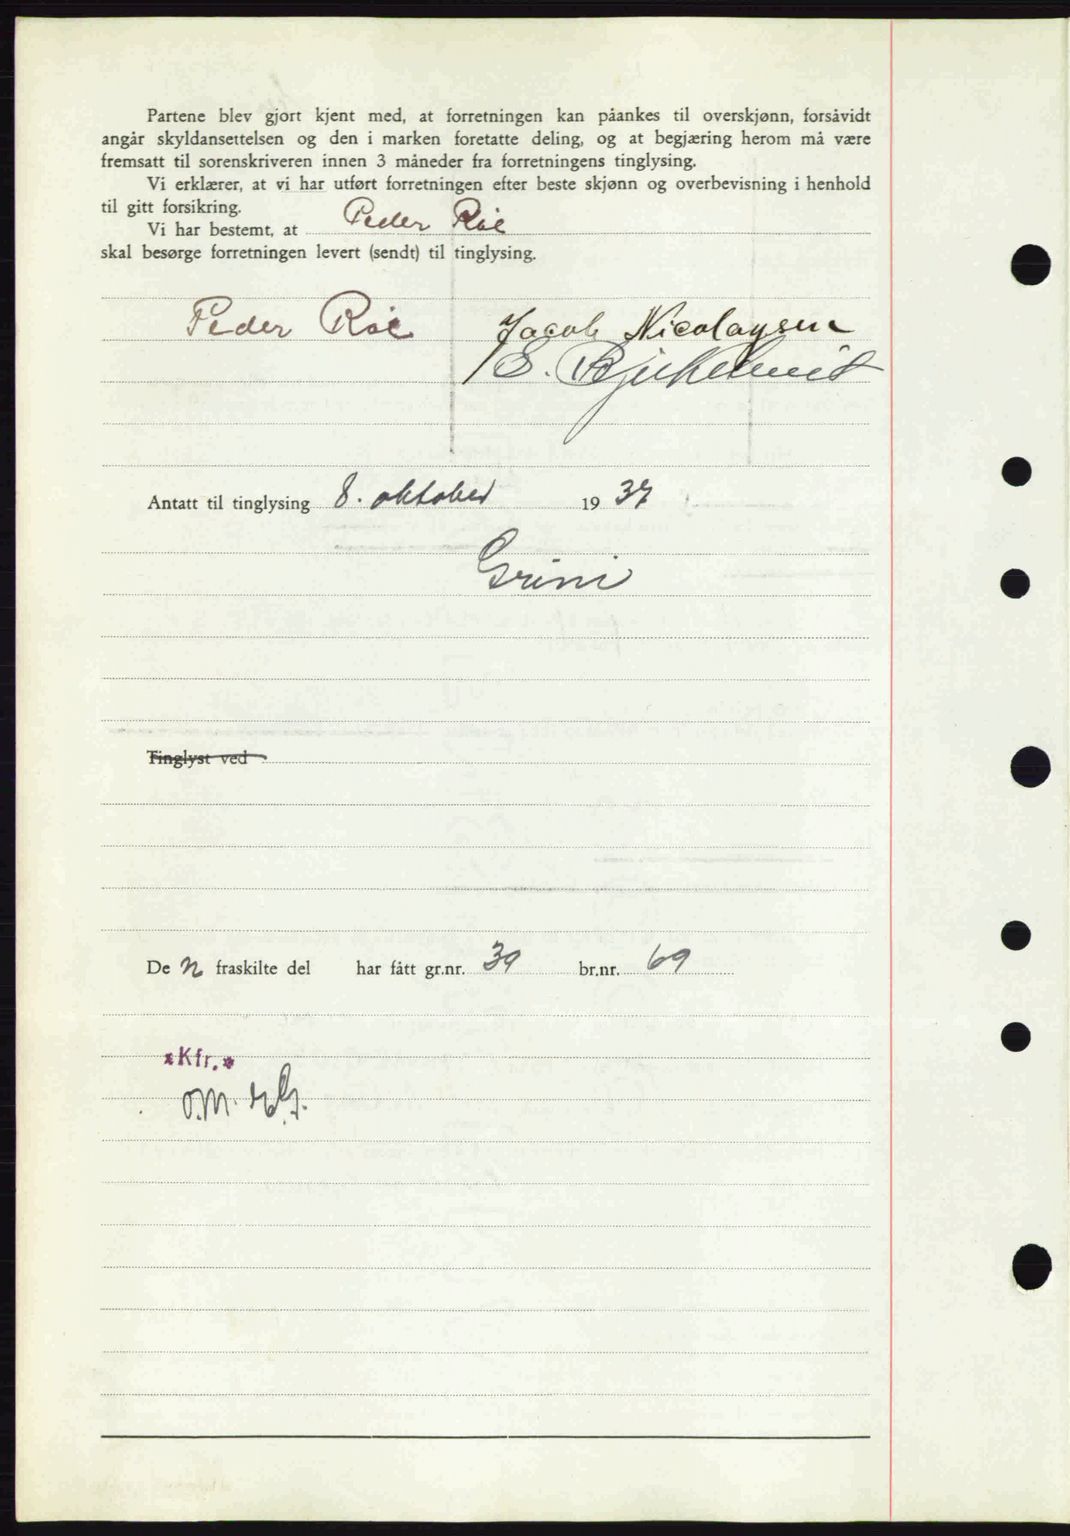 Partene blev gjort kjent med, at forretningen kan påankes til overskjønn, forsåvidt
angår skyldansettelsen og den i marken foretatte deling, og at begjæring herom må være
fremsatt til sorenskriveren innen 3 måneder fra forretningens tinglysing.
Vi erklærer, at vi har utført forretningen efter beste skjønn og overbevisning i henhold
til gitt forsikring.
Vi har bestemt, at Peder Röe
skal besørge forretningen levert (sendt) til tinglysing.
Peder Röe Jacob Nicolaysen
Antatt til tinglysing 8. oktober 1937
Grini
Tinglyst ved
De n fraskilte del har fått gr.nr. 39 br.nr. 69
*Kfr.*